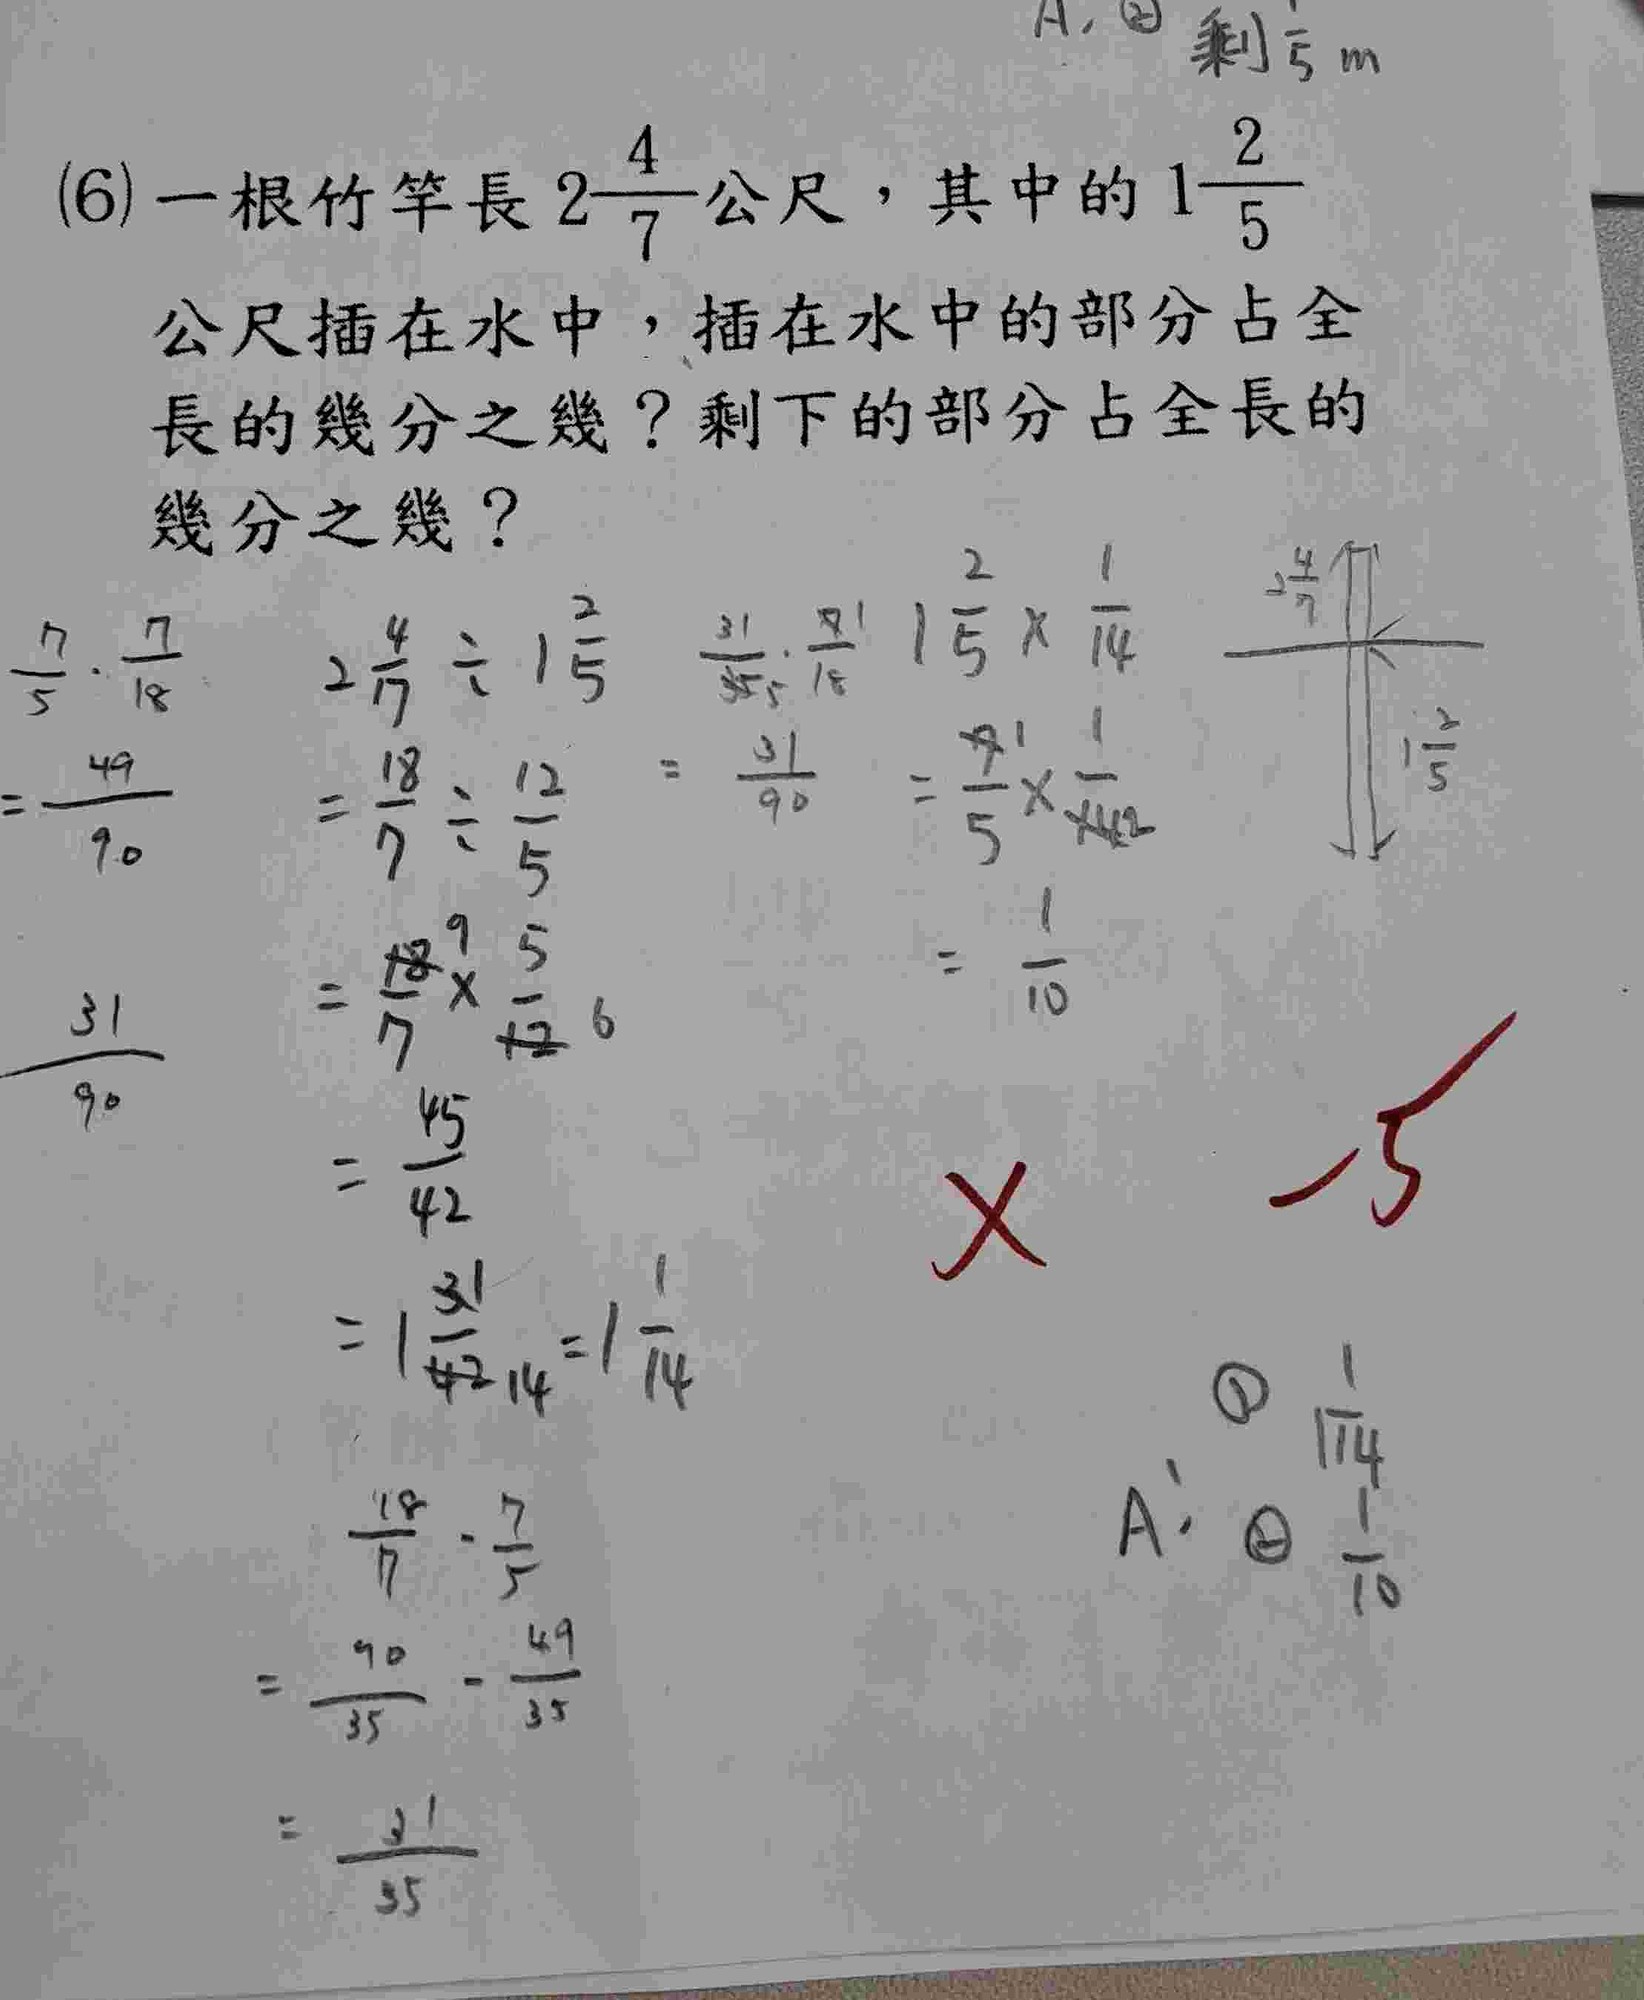 A. ② 剩 1/5 m
(6) 一根竹竿長 2 4/7 公尺，其中的 1 2/5
公尺插在水中，插在水中的部分占全
長的幾分之幾？剩下的部分占全長的
幾分之幾？
7/5 · 7/18
= 49/90
31/90
2 4/7 ÷ 1 2/5
= 18/7 ÷ 12/5
= 18/7 9 × 5/12 6
= 45/42
= 1 31/42 14 = 1 1/14
18/7 - 7/5
= 90/35 - 49/35
= 31/35
31/35 5 · 7/18 1
= 31/90
1 2/5 × 1/14
= 7/5 1 × 1/14 2
= 1/10
2 4/7
1 2/5
X
-5
① 1 1/14
A: ② 1/10